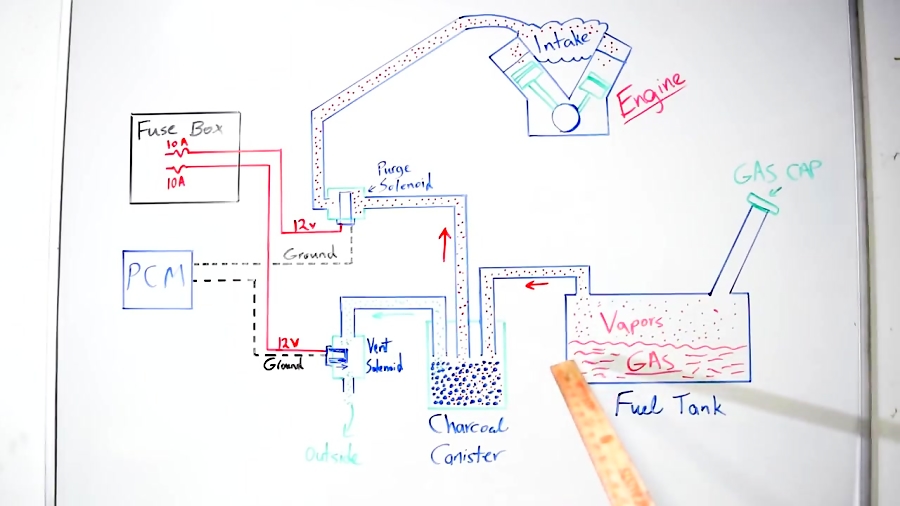 Intake
Engine
Fuse Box
10A
10A
Purge
Solenoid
GAS CAP
12v
Ground
PCM
Vapors
GAS
12V
Ground
Vent
Solenoid
Fuel Tank
Charcoal
Canister
Outside